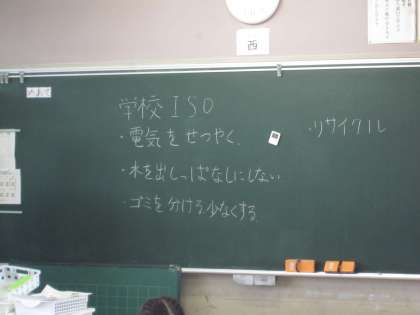 西
めあて
学校ISO
・電気をせつやく。
・水を出しっぱなしにしない
・ゴミを分けろ少なくする。
・リサイクル